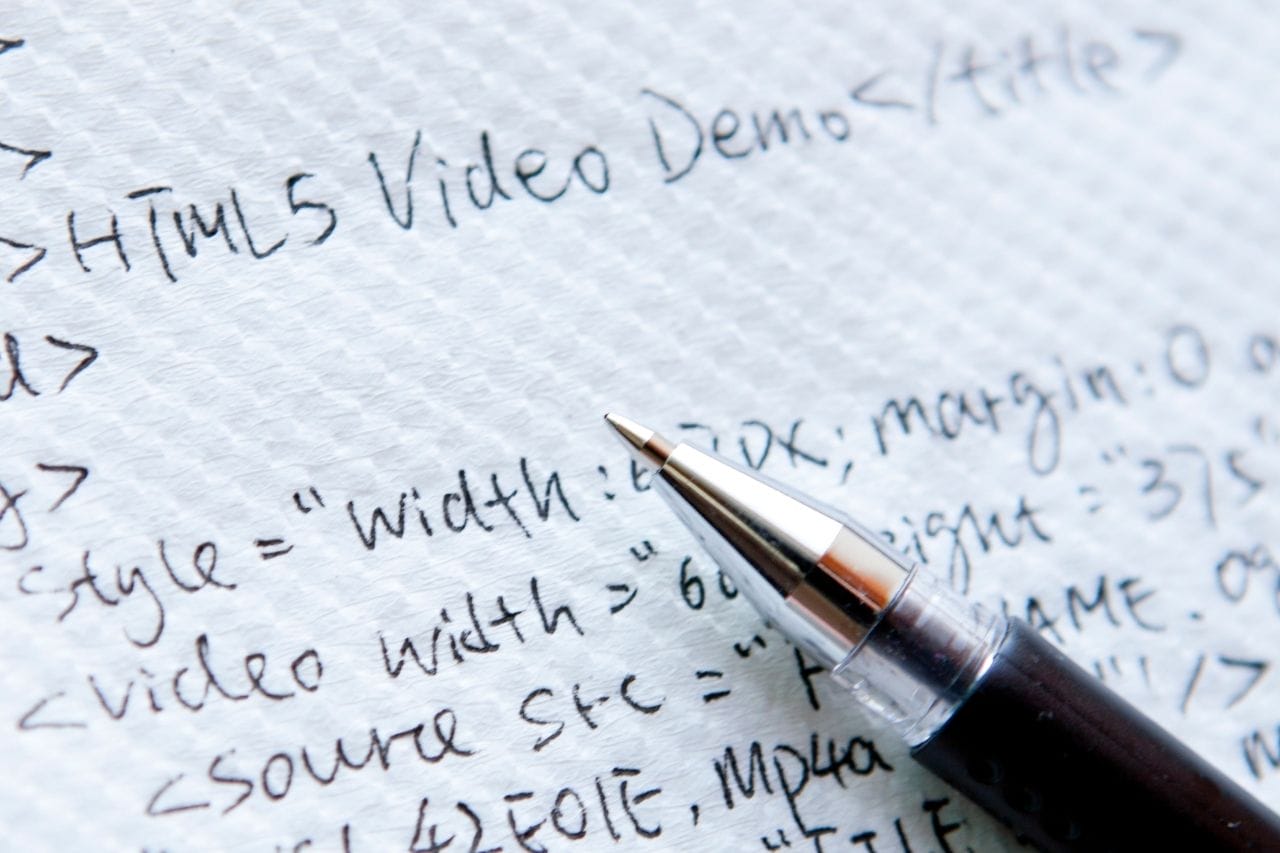 >
>
>HTML5 Video Demo</title>
d>
y>
style="width: px; margin:0 a
<video width="60 eight="375"
<source src="F AME.og
"' />
42E01E, Mp4a
"FILE